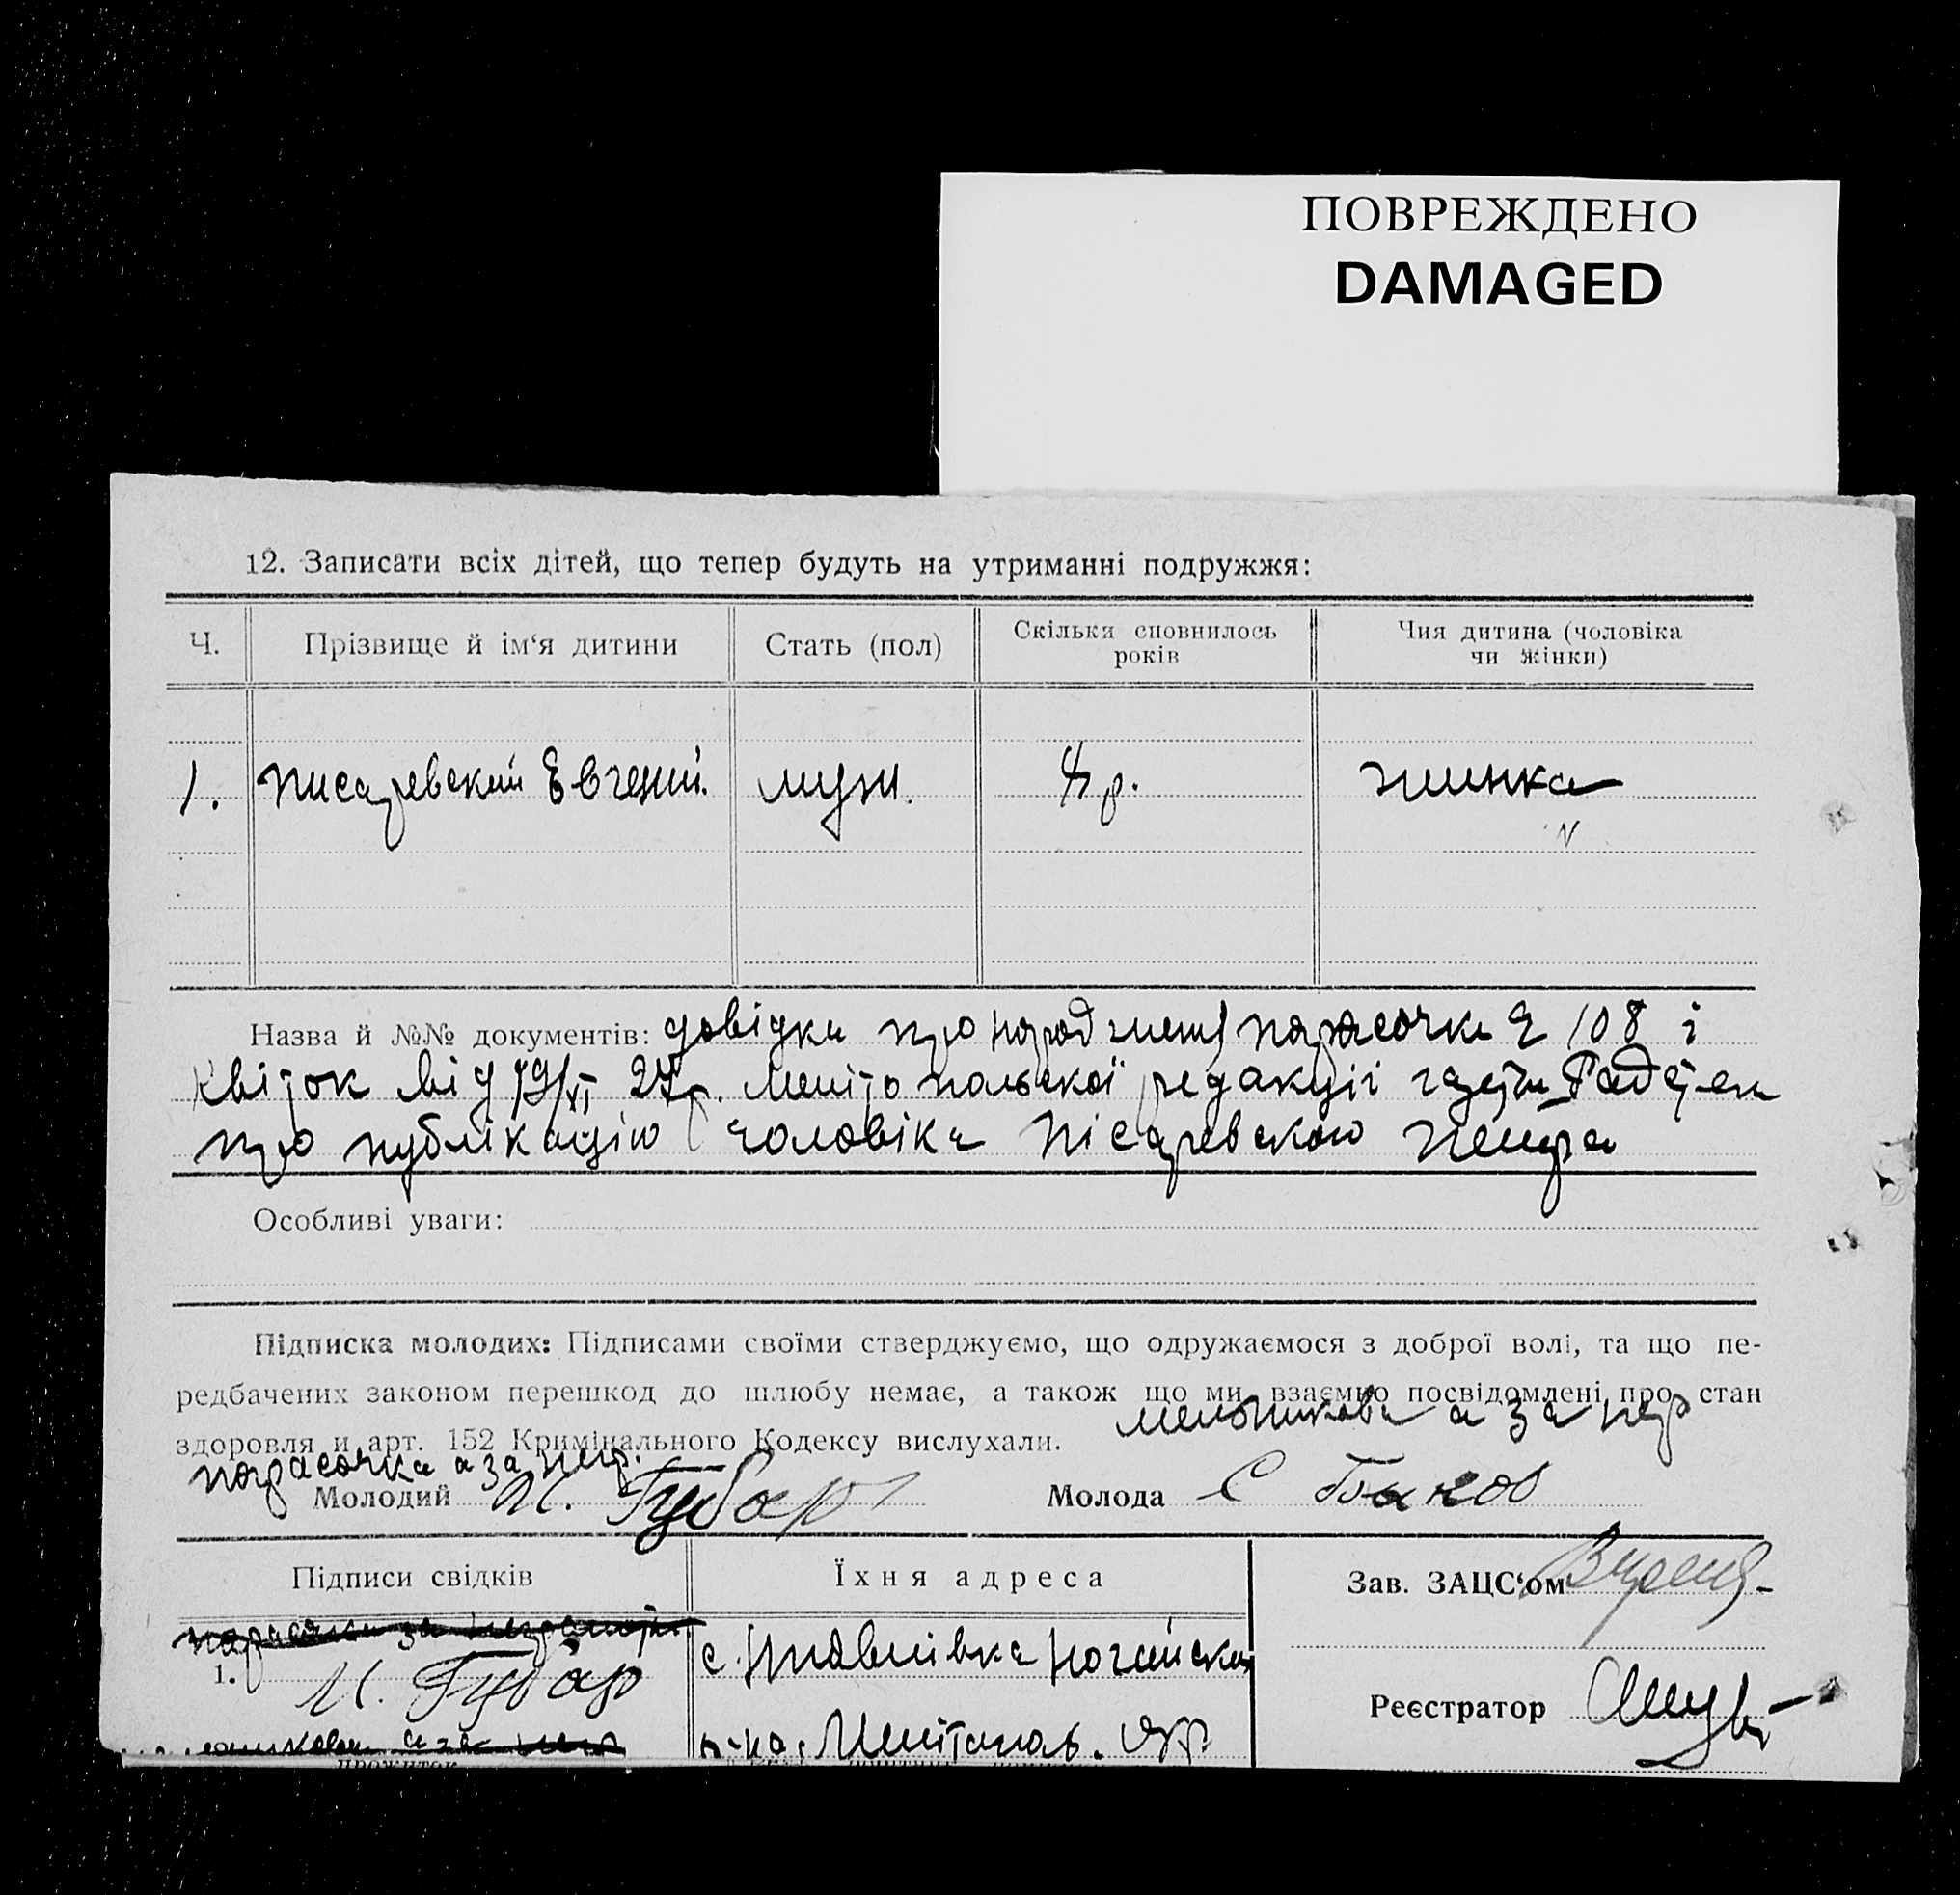 ПОВРЕЖДЕНО
DAMAGED
12. Записати всіх дітей, що тепер будуть на утриманні подружжя:
Ч. Прізвище й ім‘я дитини Стать (пол) Скільки сповнилось років Чия дитина (чоловіка чи жінки)
1. Писаревский Евгений. муж. р. жинка
Назва й №№ документів: довідки про народження Парасочки 108 і
квіток від 19/VI 27р. Мелітопольскої редакціі газети Рад
про публікацію чоловіка Пісаревского Петра
Особливі уваги:
Підписка молодих: Підписами своїми стверджуємо, що одружаємося з доброї волі, та що пе-
редбачених законом перешкод до шлюбу немає, а також що ми взаємно посвідомлені про стан
здоровля и арт. 152 Кримінального Кодексу вислухали.
Мельникова а за нер
Парасочка а за неп.
Молодий И. Губар Молода С
Підписи свідків Їхня адреса Зав. ЗАЦС‘ом
1. И. Губар
Реєстратор
а за
р-на, Мелітополь. окр.